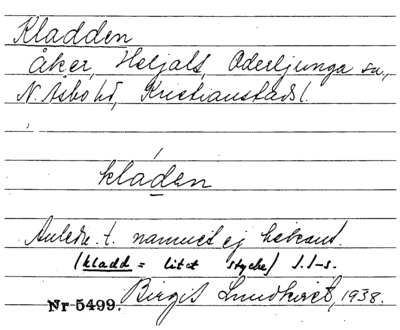 Kladden
åker, Heljalt, Oderljunga sn.,
N. Åsbo hd, Kristianstads l.
kláden
Anledn. t. namnet ej bekant.
(kladd = litet stycke) S.I-s.
Nr 5499. Birgit Lundkvist, 1938.